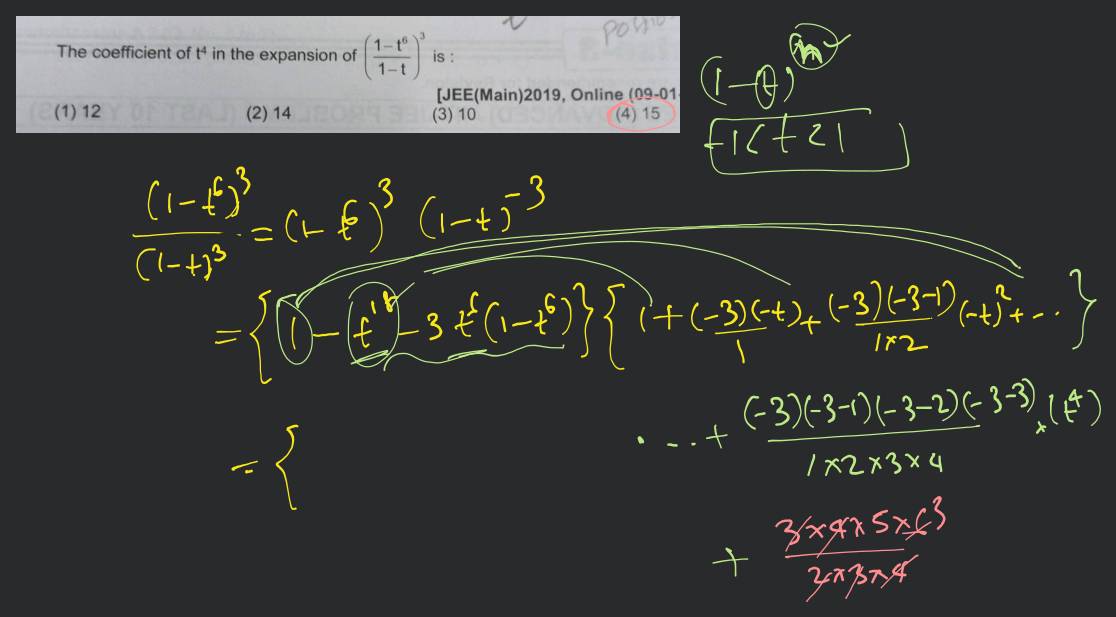 The coefficient of t⁴ in the expansion of ((1-t⁶)/(1-t))³ is :
[JEE(Main)2019, Online (09-01-
(1) 12 (2) 14 (3) 10 (4) 15
(1-t)ⁿ
-1<t<1
(1-t⁶)³/(1-t)³ = (1-t⁶)³ (1-t)⁻³
= {1 - t¹⁸ - 3t⁶(1-t⁶)}{1 + (-3)(-t)/1 + (-3)(-3-1)/1×2 (-t)² + ...}
...+ (-3)(-3-1)(-3-2)(-3-3)/1×2×3×4 × (t⁴)
= {
+ 3×4×5×6 3/2×3×4